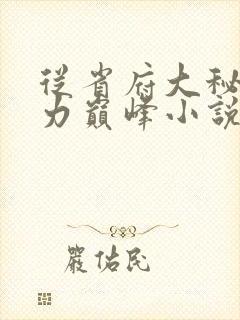 從省府大秘
力巔峰小說
嚴佑民